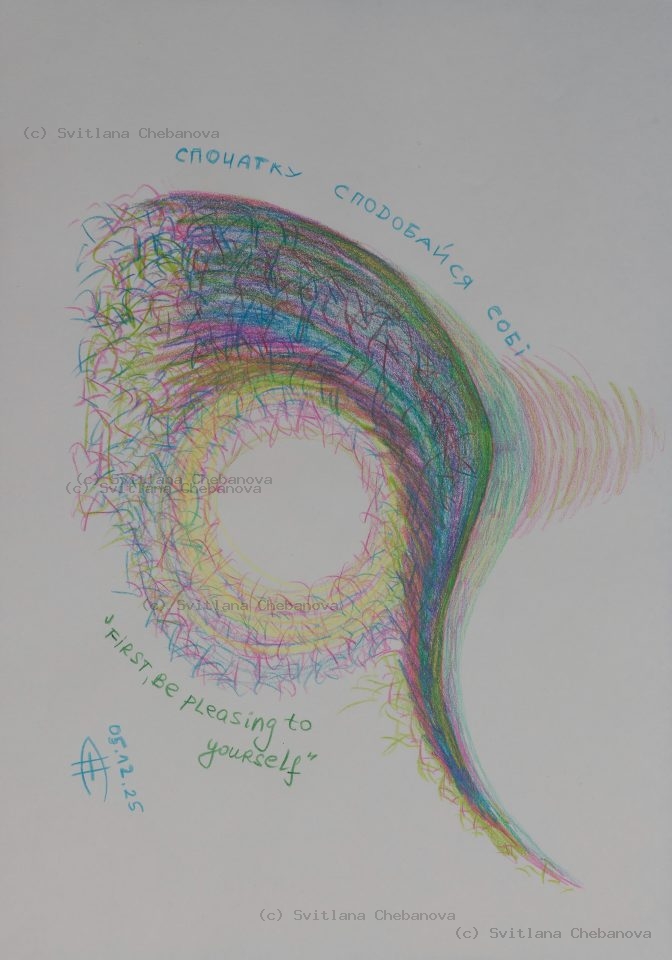 (c) Svitlana Chebanova
СПОЧАТКУ СПОДОБАЙСЯ СОБІ
(c) Svitlana Chebanova
(c) Svitlana Chebanova
(c) Svitlana Chebanova
"FIRST, BE PLEASING to
yourself"
05.12.25
(c) Svitlana Chebanova
(c) Svitlana Chebanova